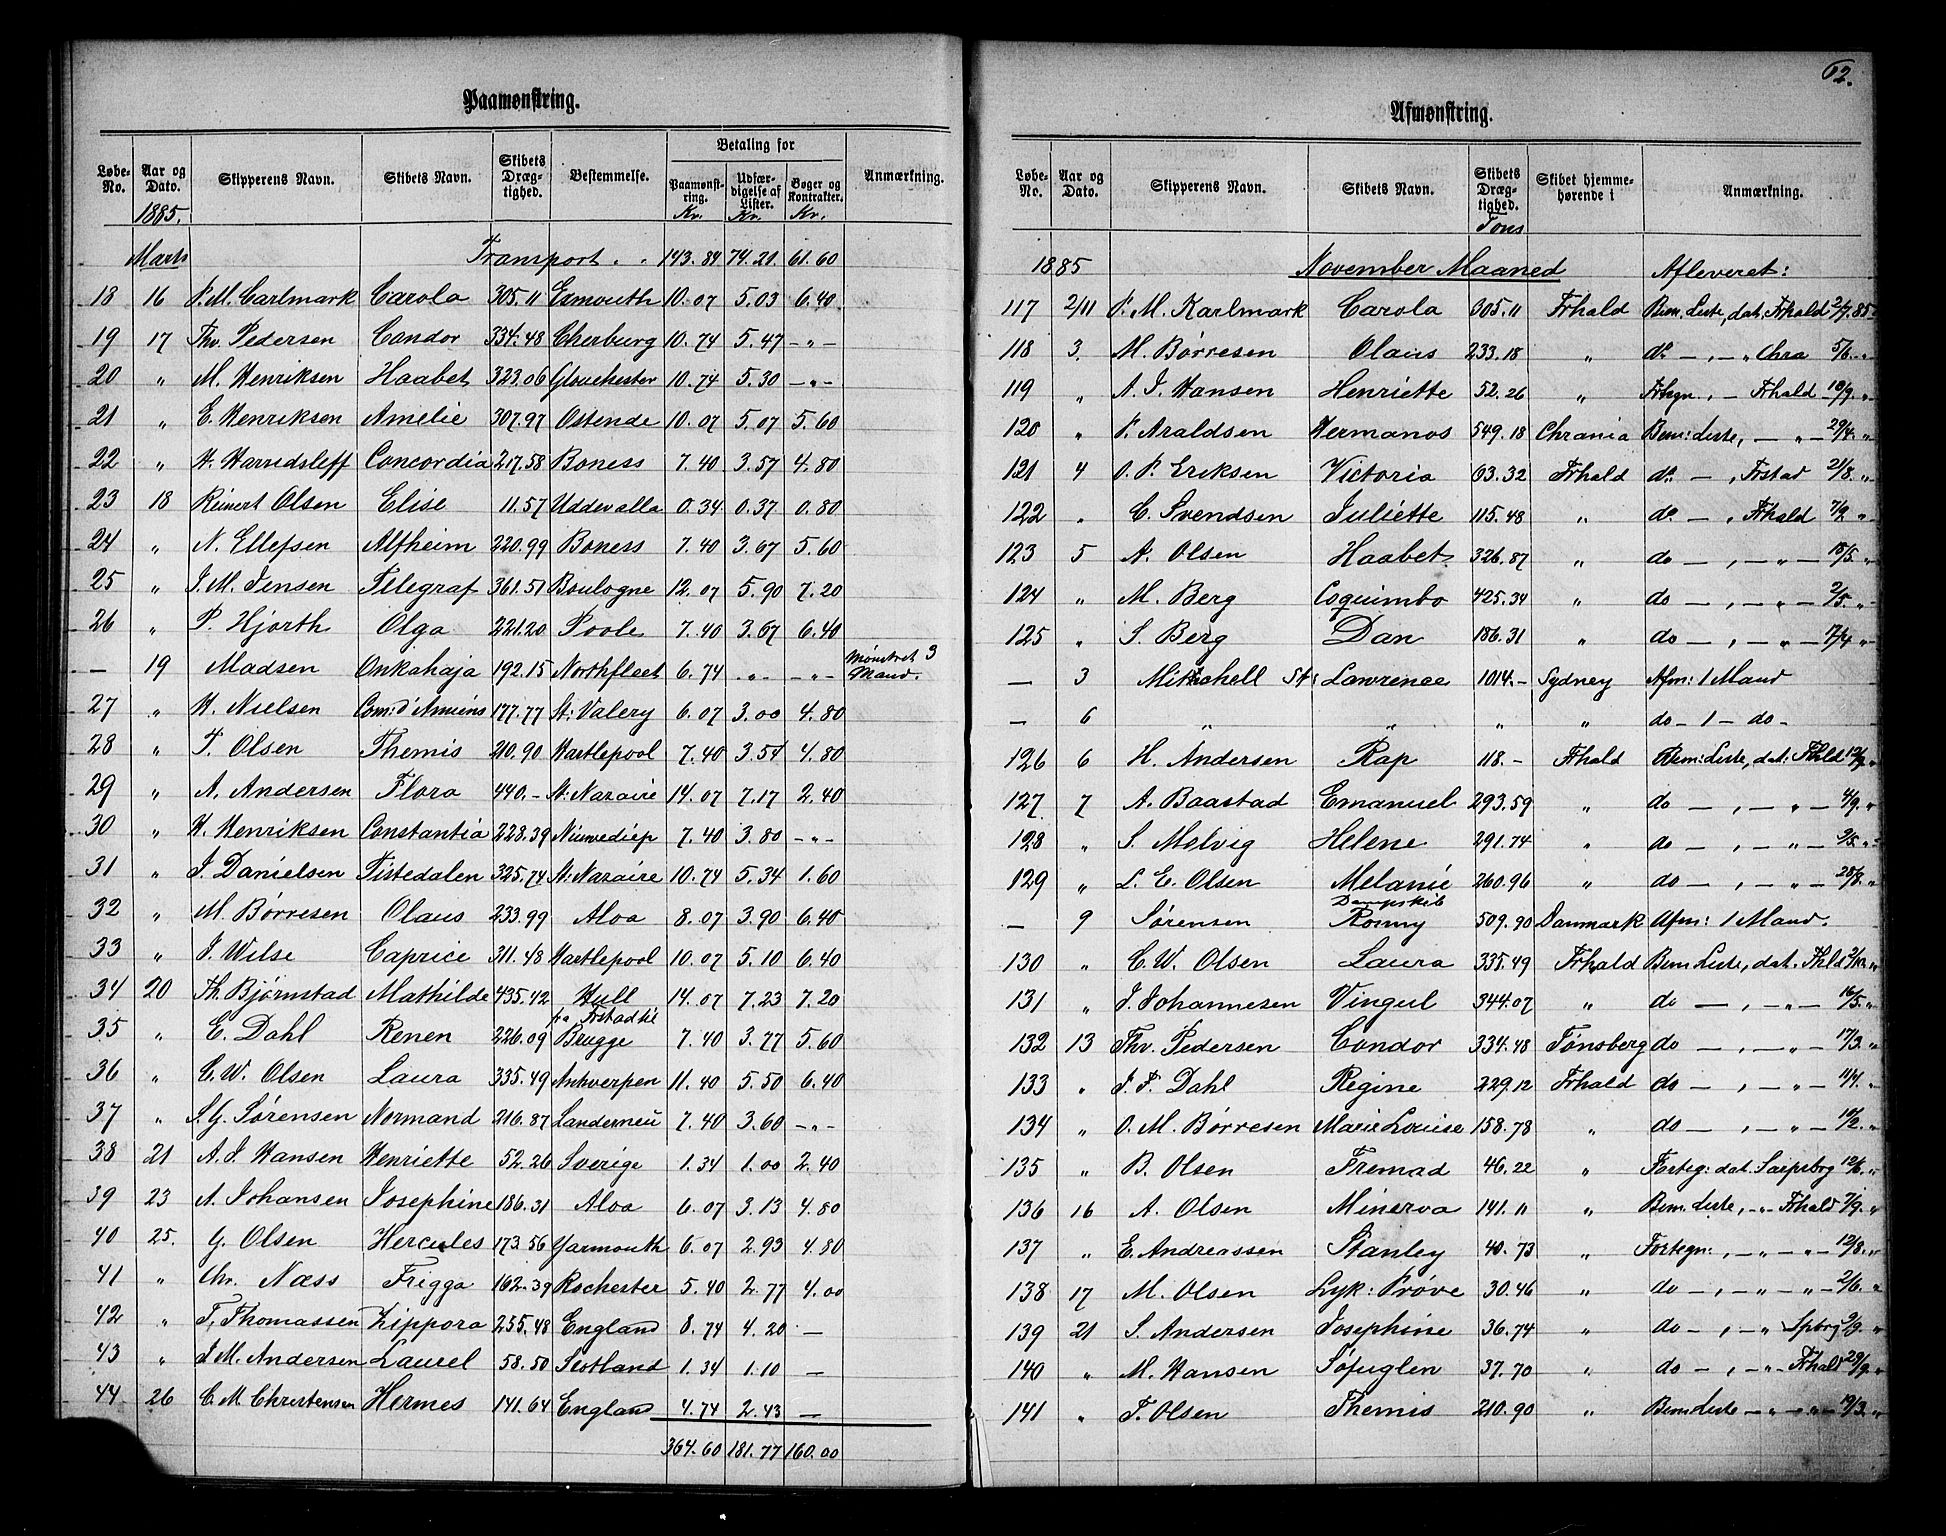 Paamønstring.
Løbe-No. Aar og Dato. Skipperens Navn. Skibets Navn. Skibets Dræg-tighed. Bestemmelse. Betaling for Paamønst-ring. Udfær-digelse af Lister. Bøger og Kontrakter. Anmærkning.
1885. Kr. Kr. Kr.
Marts Transport . . 143.84 74.21 61.60
18 16 P.M. Carlmark Carola 305.11 Exmouth 10.07 5.03 6.40
19 17 Thv. Pedersen Condor 334.48 Cherburg 10.74 5.47 -„-
20 „ M. Henriksen Haabet 323.06 Glouchester 10.74 5.30 -„-
21 „ E. Henriksen Amelie 307.97 Ostende 10.07 5.07 5.60
22 „ H. Harridsleff Concordia 217.58 Boness 7.40 3.57 4.80
23 18 Reinert Olsen Elise 11.57 Uddevalla 0.34 0.37 0.80
24 „ N. Ellefsen Alfheim 220.99 Boness 7.40 3.67 5.60
25 „ J.M. Jensen Telegraf 361.51 Boulogne 12.07 5.90 7.20
26 „ P. Hjorth Olga 221.20 Poole 7.40 3.67 6.40
— 19 Madsen Onkahaja 192.15 Northfleet 6.74 „- -„- Mønstret 3 Mand.
27 „ H. Nielsen Com: d'Amiens 177.77 St: Valery 6.07 3.00 4.80
28 „ T. Olsen Themis 210.90 Hartlepool 7.40 3.54 4.80
29 „ A. Andersen Flora 440.- St: Nazaire 14.07 7.17 2.40
30 „ H. Henriksen Constantia 228.39 Nieuwediep 7.40 3.80 -„-
31 „ J. Danielsen Tistedalen 325.74 St: Nazaire 10.74 5.34 1.60
32 „ M. Børresen Olaus 233.99 Aloa 8.07 3.90 6.40
33 „ J. Wilse Caprice 311.48 Hartlepool 10.07 5.10 6.40
34 20 Th. Bjørnstad Mathilde 435.42 Hull 14.07 7.23 7.20
35 „ E. Dahl Renen 226.09 fra Frstad til Brugge 7.40 3.77 5.60
36 „ C.W. Olsen Laura 335.49 Antverpen 11.40 5.50 6.40
37 „ S.G. Sørensen Normand 216.87 Landerneu 7.40 3.60 -„-
38 21 A.J. Hansen Henriette 52.26 Sverige 1.34 1.00 2.40
39 23 A. Johansen Josephine 186.31 Aloa 6.07 3.13 4.80
40 25. G. Olsen Hercules 173.56 Yarmouth 6.07 2.93 4.80
41 „ Chr. Næss Frigga 162.39 Rochester 5.40 2.77 4.00
42 „ T. Thomassen Zippora 255.48 England 8.74 4.20 —
43 „ J.M. Andersen Laurel 58.50 Scotland 1.34 1.10 —
44 26 C.M. Christensen Hermes 141.64 England 4.74 2.43 —
364.60 181.77 160.00
62.
Afmønstring.
Løbe-No. Aar og Dato. Skipperens Navn. Skibets Navn. Skibets Dræg-tighed. Skibet hjemme-hørende i Anmærkning.
Tons
1885 November Maaned Afleveret:
117 2/11 P. M. Karlmark Carola 305.11 Frhald Bem. Liste, dat. Frhald 2/7. 85
118 3. M. Børresen Olaus 233.18 „ do — „ — „ Chra 5/6. „
119 „ A. J. Hansen Henriette 52.26 „ Frtegn. „ — Frhald 18/9. „
120 „ P. Araldsen Hermanos 549.18 Chrania Bem: Liste, — „ — 29/4. „
121 4 O. P. Eriksen Victoria 63.32 Frhald do. — „ Frstad 21/8. „
122 „ C. Svendsen Juliette 115.48 „ do. — „ Frhald 7/9. „
123 5 A. Olsen Haabet 326.87 „ do — „ — „ — 18/5. „
124 „ M. Berg Coquimbo 425.34 „ do — „ — „ — 2/5. „
125 „ S. Berg Dan 186.31 „ do — „ — „ — 17/4 „
— 3 Mitchell St: Lawrence 1014.- Sydney Afm: 1 Mand
— 6 „ „ „ „ do - 1 - do -
126 6 H. Andersen Rap 118.- Frhald Bem: Liste, dat: Fhld 12/9. „
127 7 A. Baastad Emanuel 293.59 „ do — „ — „ — 4/9. „
128 „ S. Melvig Helene 291.74 „ do — „ — „ — 2/5. „
129 „ L. E. Olsen Melanie 260.96 „ do — „ — „ — 28/8. „
— 9 Sørensen Dampskib Ronny 509.90 Danmark Afm: 1 Mand.
130 „ C. W. Olsen Laura 335.49 Frhald Bem Liste, dat. Fhld 2/10. „
131 „ J. Johannesen Vingul 344.07 „ do — „ — „ — 16/5. „
132 13 Thv. Pedersen Condor 334.48 Tønsberg do — „ — „ — 17/3. „
133 „ J. F. Dahl Regine 229.12 Frhald do — „ — „ — 11/4. „
134 „ O. M. Børresen Marie Louise 158.78 „ do — „ — „ — 10/2. „
135 „ B. Olsen Fremad 46.22 „ Forteg: dat. Sarpsborg 12/6. „
136 16 A. Olsen Minerva 141.11 „ Bem. Liste, „ Frhald 7/9. „
137 „ E. Andreassen Stanley 40.73 „ Fortegn: „ — „ — „ — 12/8. „
138 17 M. Olsen Lyk: Prøve 30.46 „ do — „ — „ — „ — 2/6. „
139 21 S. Andersen Josephine 36.74 „ do — „ — „ Spbrg 2/9. „
140 „ M. Hansen Søfuglen 37.70 „ do — „ — „ Frhald 29/9. „
141 „ T. Olsen Themis 210.90 „ Bem: Liste — „ — „ — 19/3. „